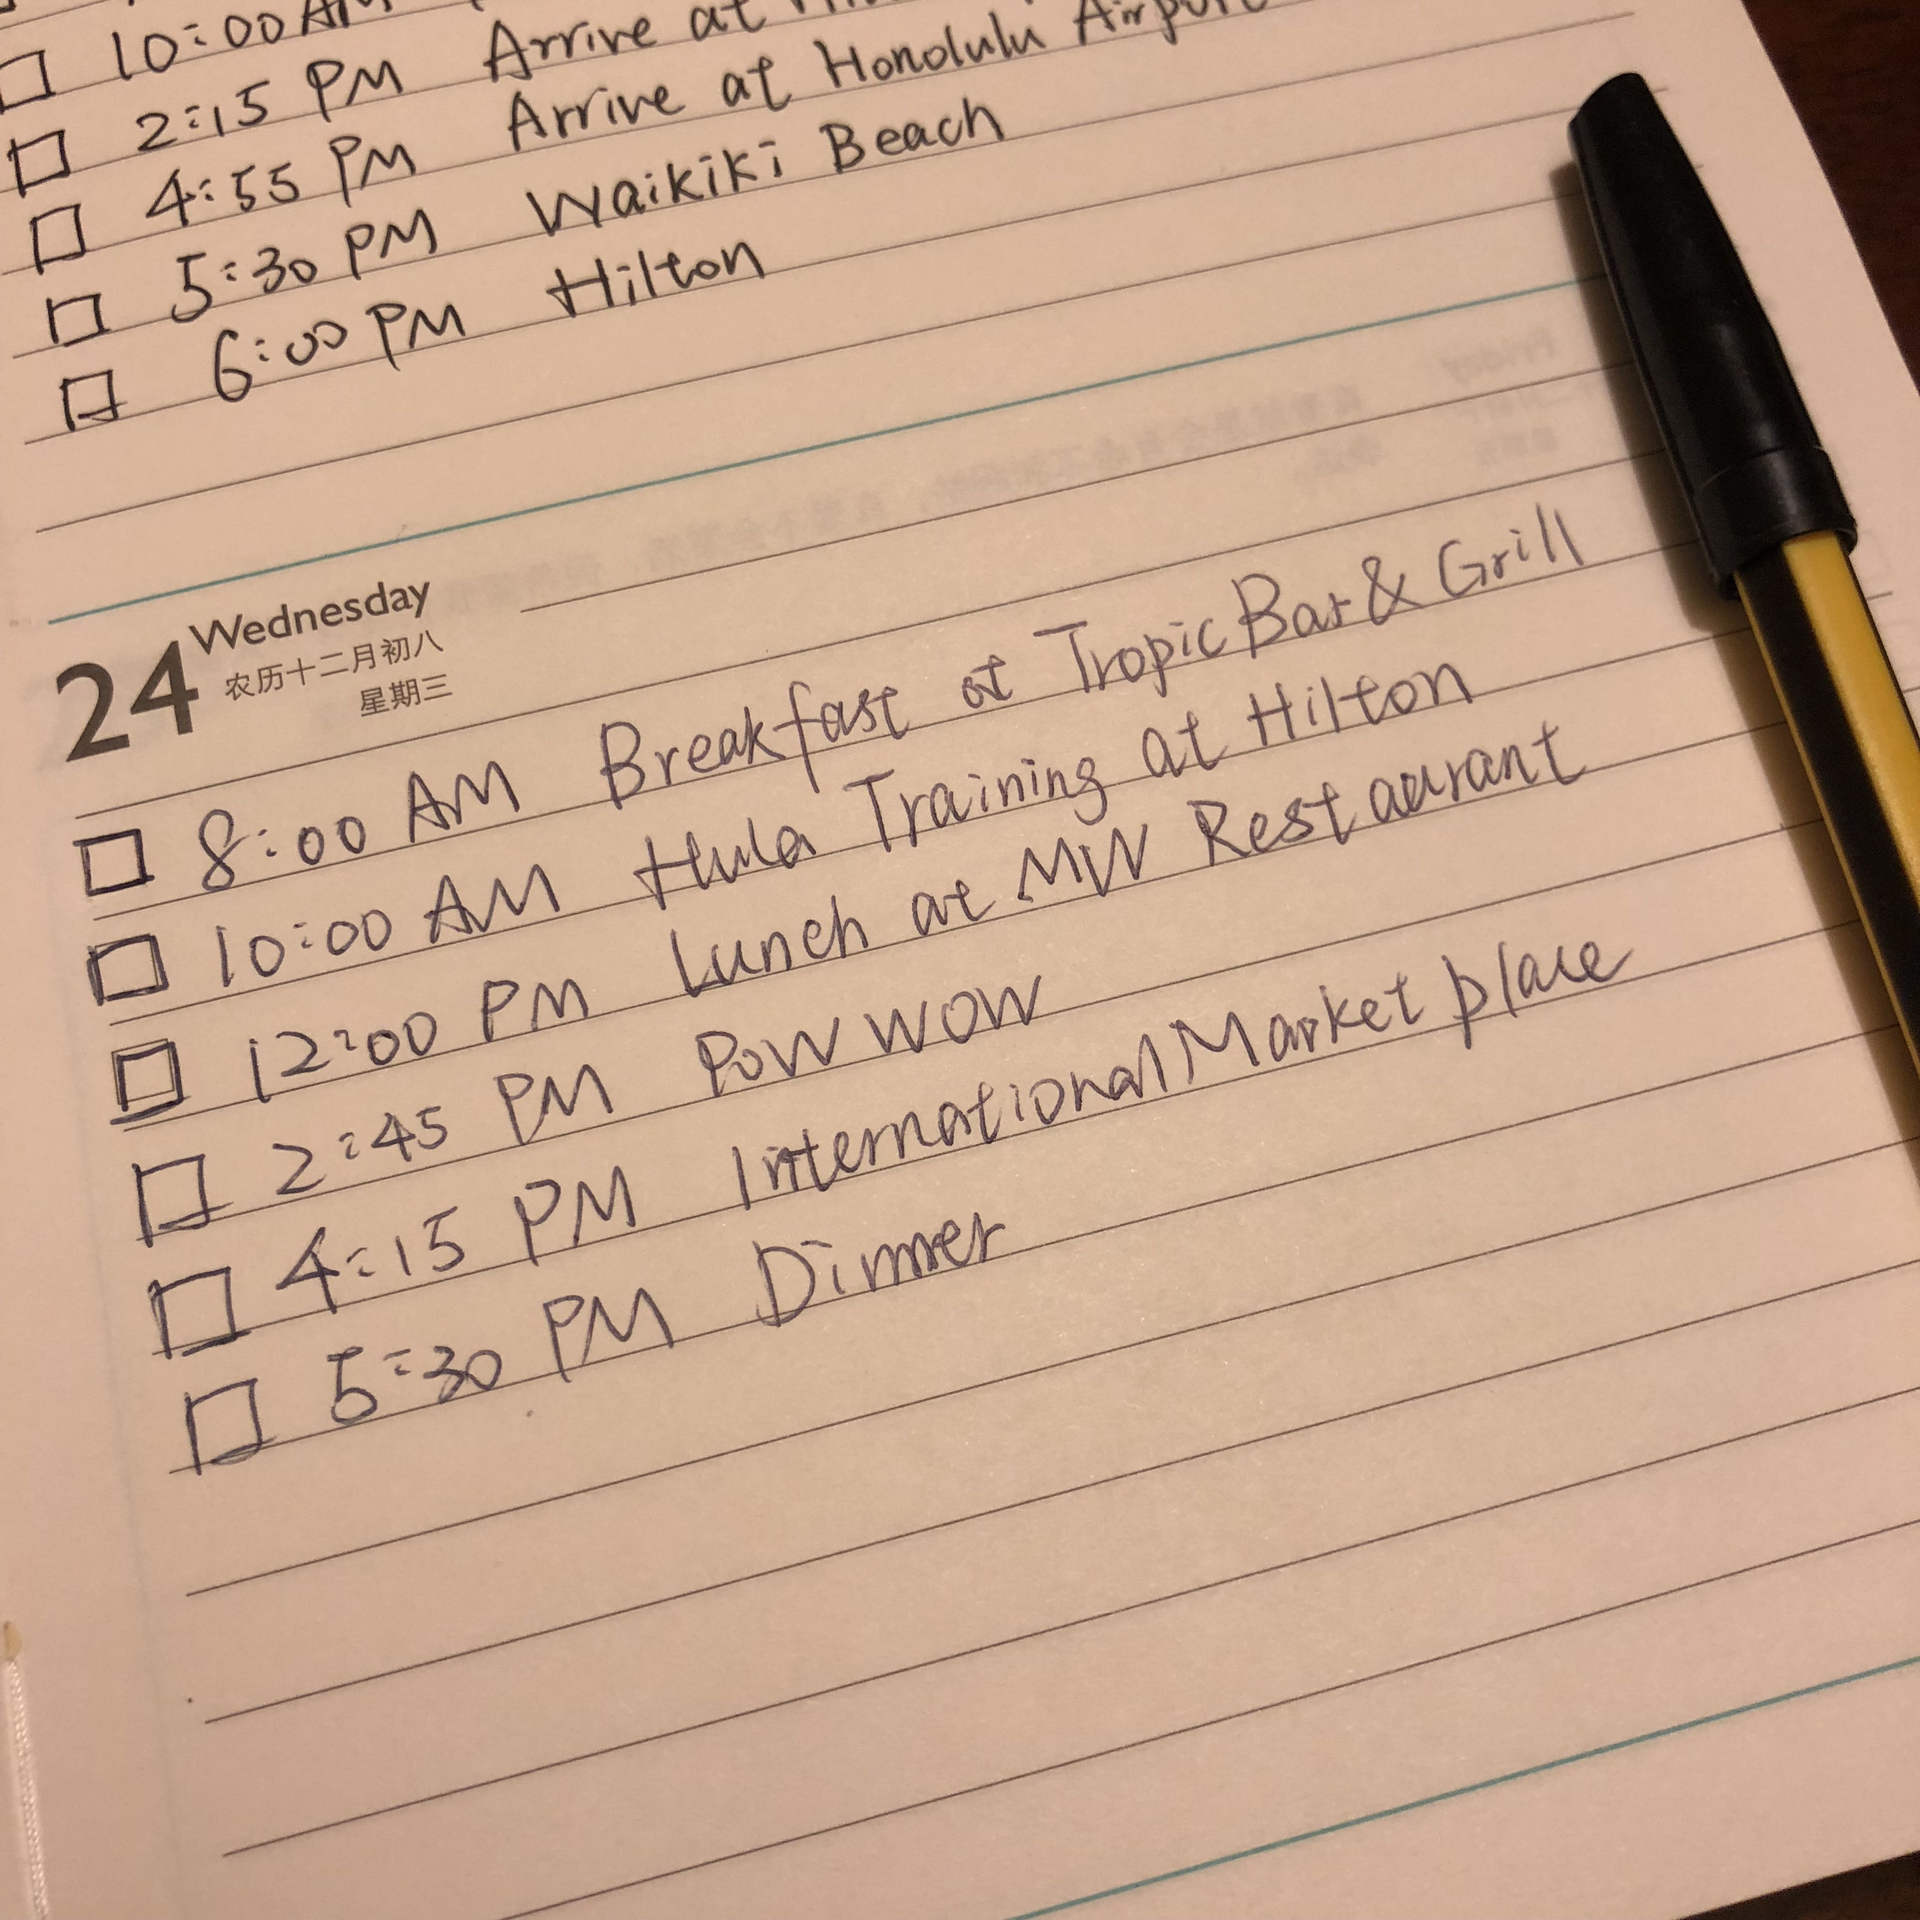 10:00 AM
2:15 PM Arrive at
4:55 PM Arrive at Honolulu Airport
5:30 PM Waikiki Beach
6:00 PM Hilton
24 Wednesday
农历十二月初八
星期三
8:00 AM Breakfast at Tropic Bar & Grill
10:00 AM Hula Training at Hilton
12:00 PM Lunch at MW Restaurant
2:45 PM POW WOW
4:15 PM International Market place
5:30 PM Dinner